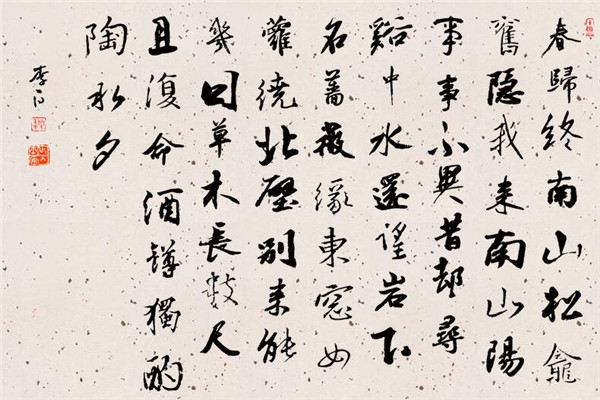 春歸終南山松龕
舊隱我来南山陽
事事不異昔却尋
谿中水還望岩下
石薔薇緣東窓女
蘿繞北壁別来能
幾日草木長數尺
且復命酒罇獨酌
陶永夕
李白